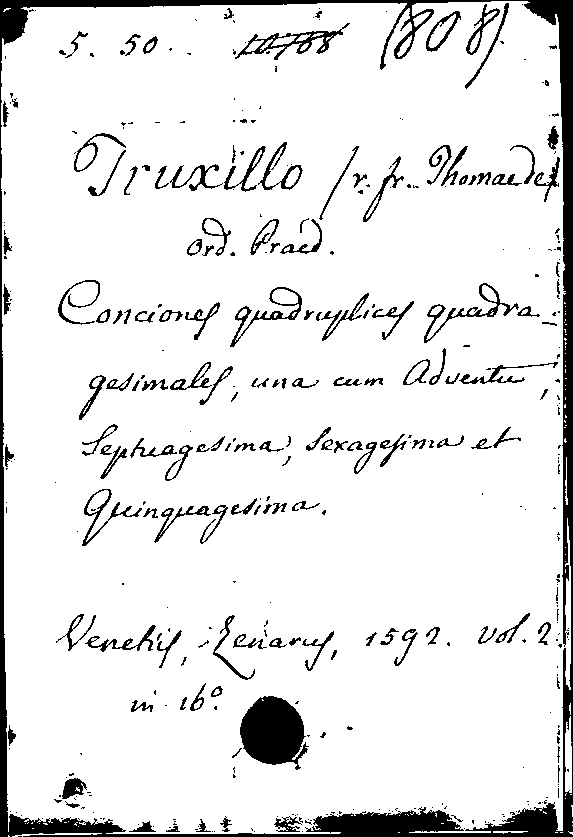 5. 50. (808)
Truxillo /r. fr. Thomae de/
ord. Praed.
Conciones quadruplices quadra-
gesimales, una cum Adventu,
Septuagesima, Sexagesima et
Quinquagesima.
Venetiis, Zenarus, 1592. vol. 2
in 16°.